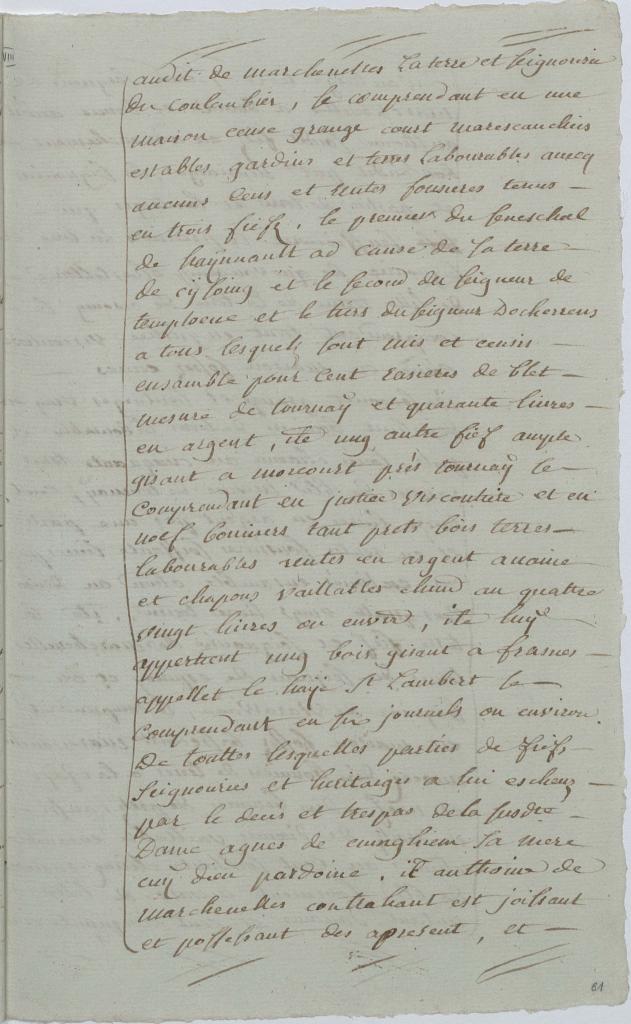 VIII
audit de marchenelles La terre et Seignourie
du Coulombier, se comprendant en une
maison cense grange court marescauchies
estables gardins et terres labourables avecq
aucuns Cens et rentes fonsieres tenus
en trois fiefz, le premier du seneschal
de haynnault ad cause de sa terre
de cÿsoing et le second du seigneur de
temploeue et le tiers du seigneur
a tous lesquelz sont mis et censis
ensamble pour Cent rasieres de blet
mesure de tournaÿ et quarante livres
en argent, ite ung autre fief ample
gisant a morcourt près tournaÿ se
comprendant en justice viscontiere et en
noef bonniers tant prets bois terres
labourables rentes en argent avaine
et chapons vaillables au quattre
vingt livres ou environ, ite luÿ
appertient ung bois gisant a frasnes
appellet le haÿe St Lambert se
Comprendant en six journels ou environ.
De touttes lesquelles parties de fiefs
Seignouries et heritaiges a lui escheuz
par le decès et trespas de la susdte
Dame agnes de cuinghiem sa mere
cuÿ dieu pardoine, it anthoine de
marchenelles contrahant est joissant
et possessant des apresent, et
61